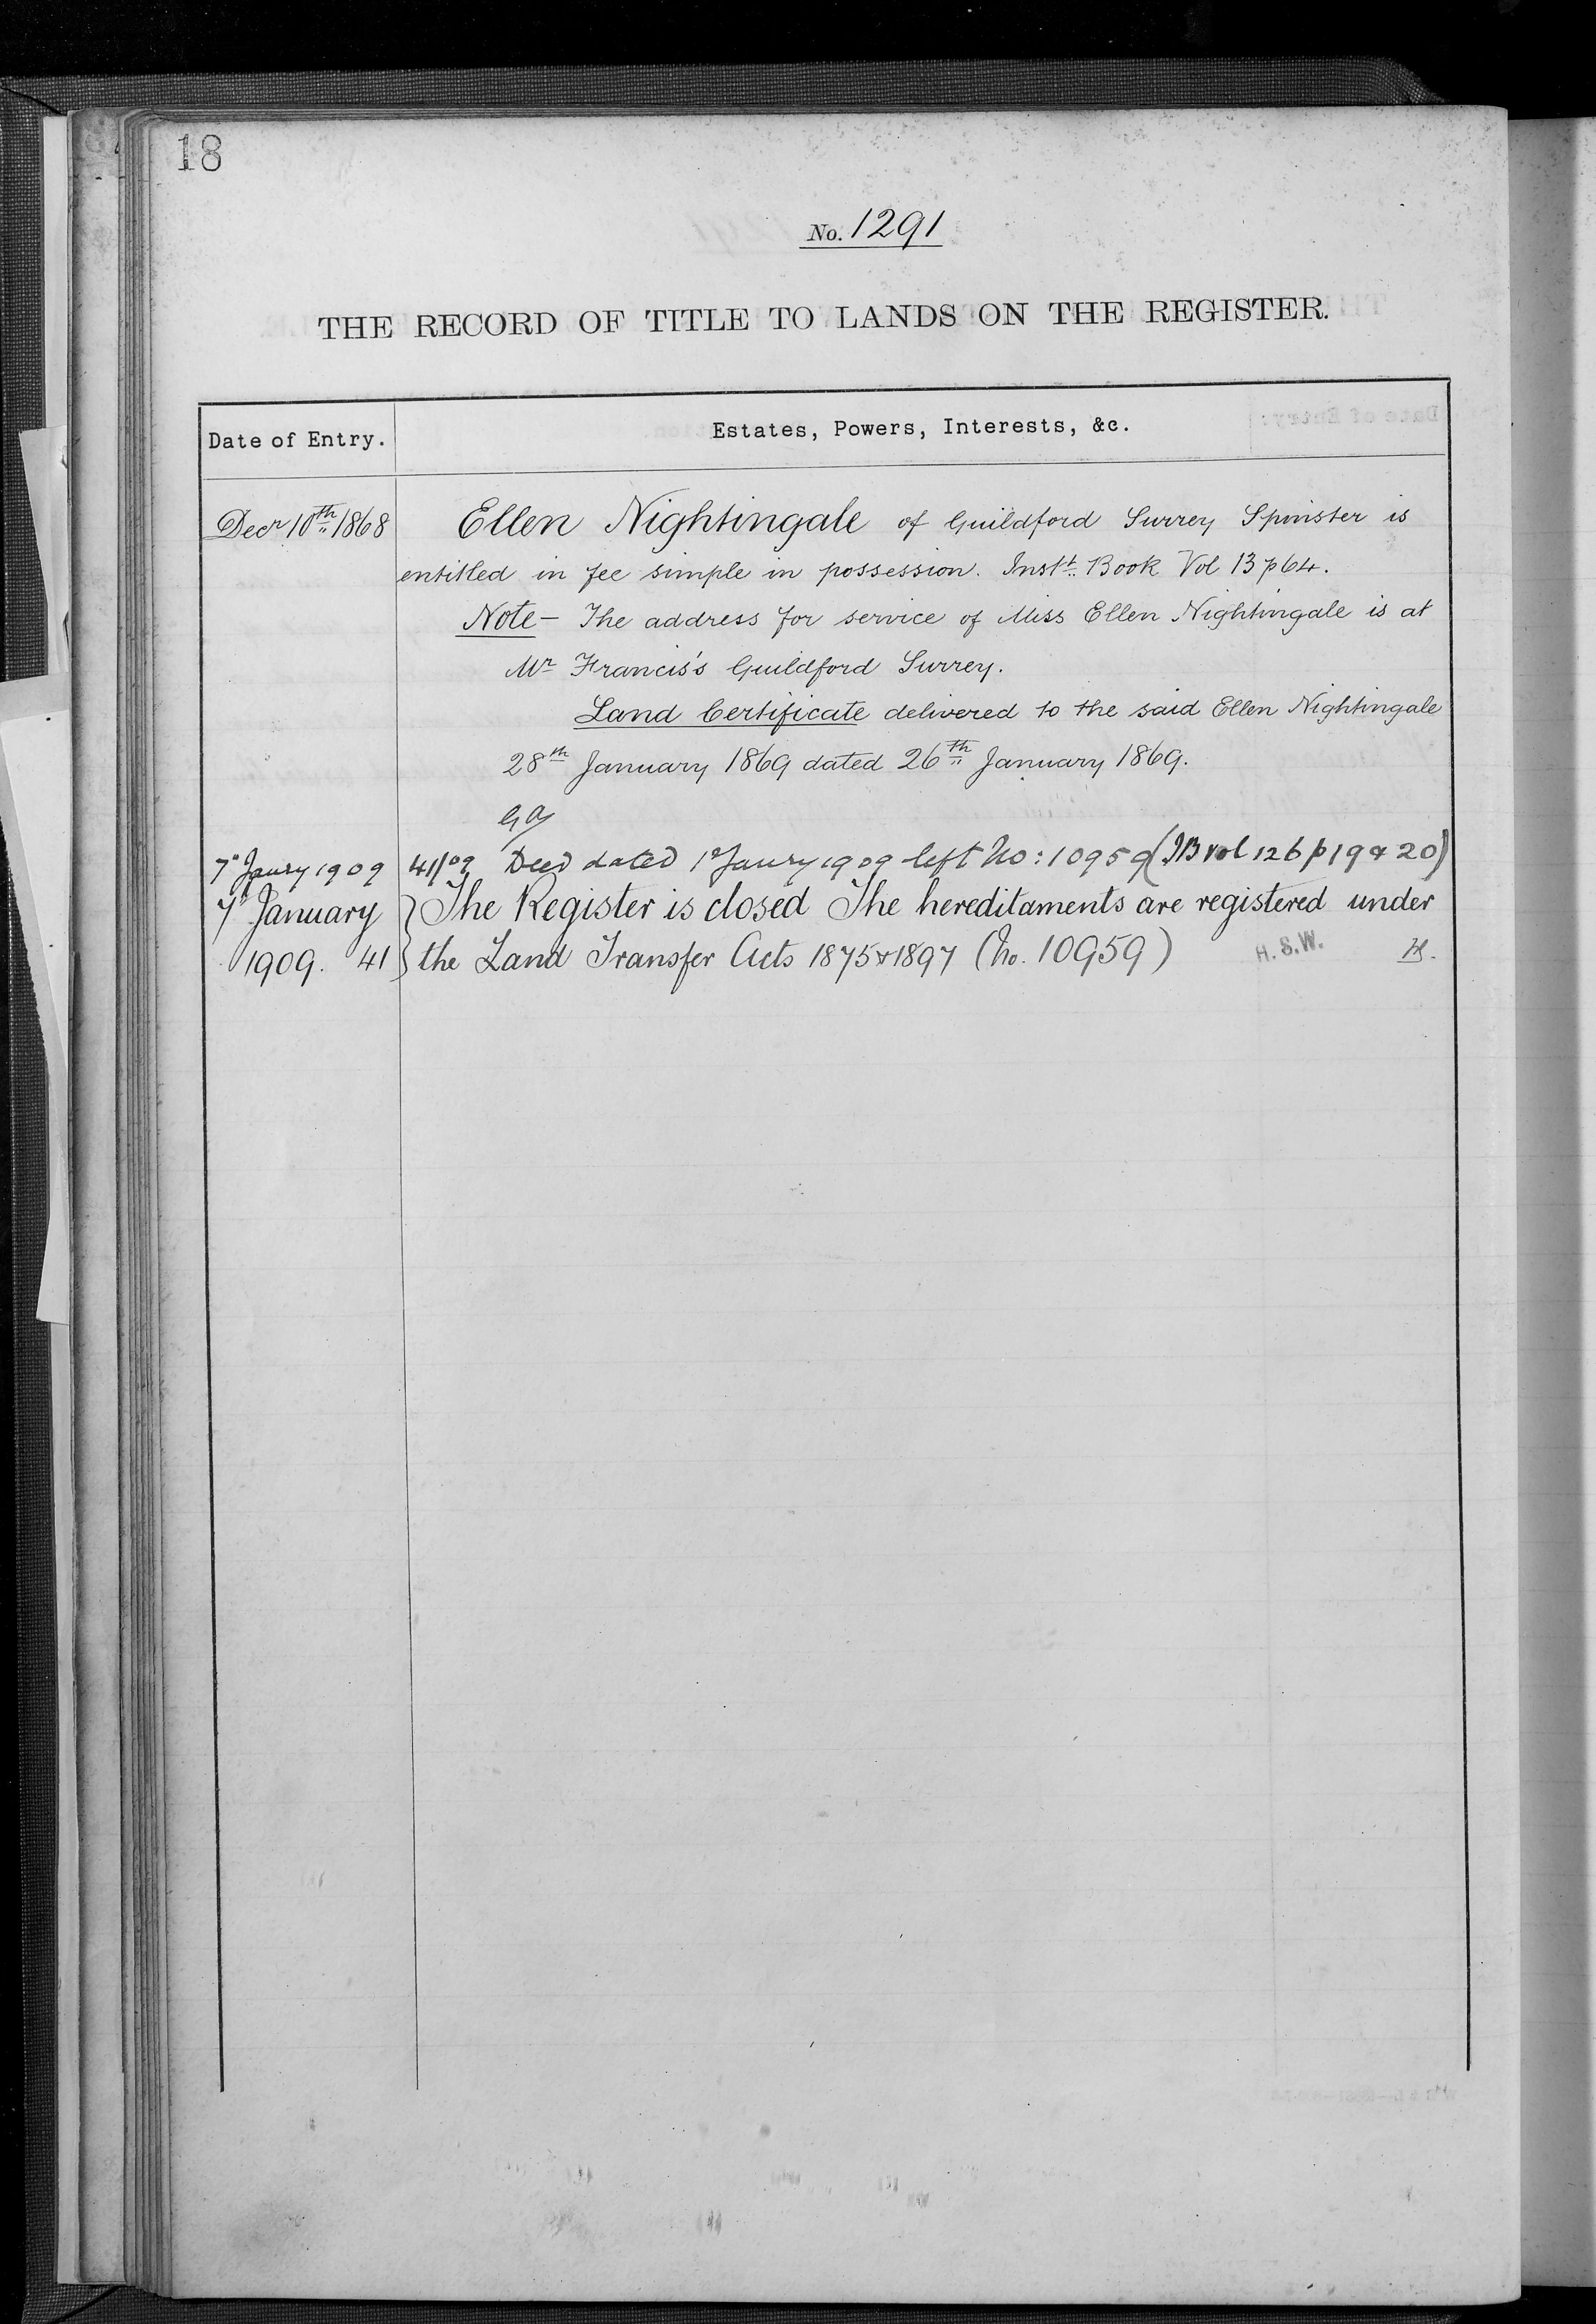 18
No. 1291
THE RECORD OF TITLE TO LANDS ON THE REGISTER.
Date of Entry. Estates, Powers, Interests, &c.
Decr 10th 1868 Ellen Nightingale of Guildford Surrey Spinster is
entitled in fee simple in possession. Instt. Book Vol 13 p 64.
Note - The address for service of Miss Ellen Nightingale is at
Mr Francis's Guildford Surrey.
Land Certificate delivered to the said Ellen Nightingale
28th January 1869 dated 26th January 1869.
7th Janry 1909 41/09 Deed dated 1st Janry 1909 left No: 10959 (IB vol 126 p 19 & 20)
7th January } The Register is closed The hereditaments are registered under
1909. 41 } the Land Transfer Acts 1875 & 1897 (No. 10959) H.S.W.